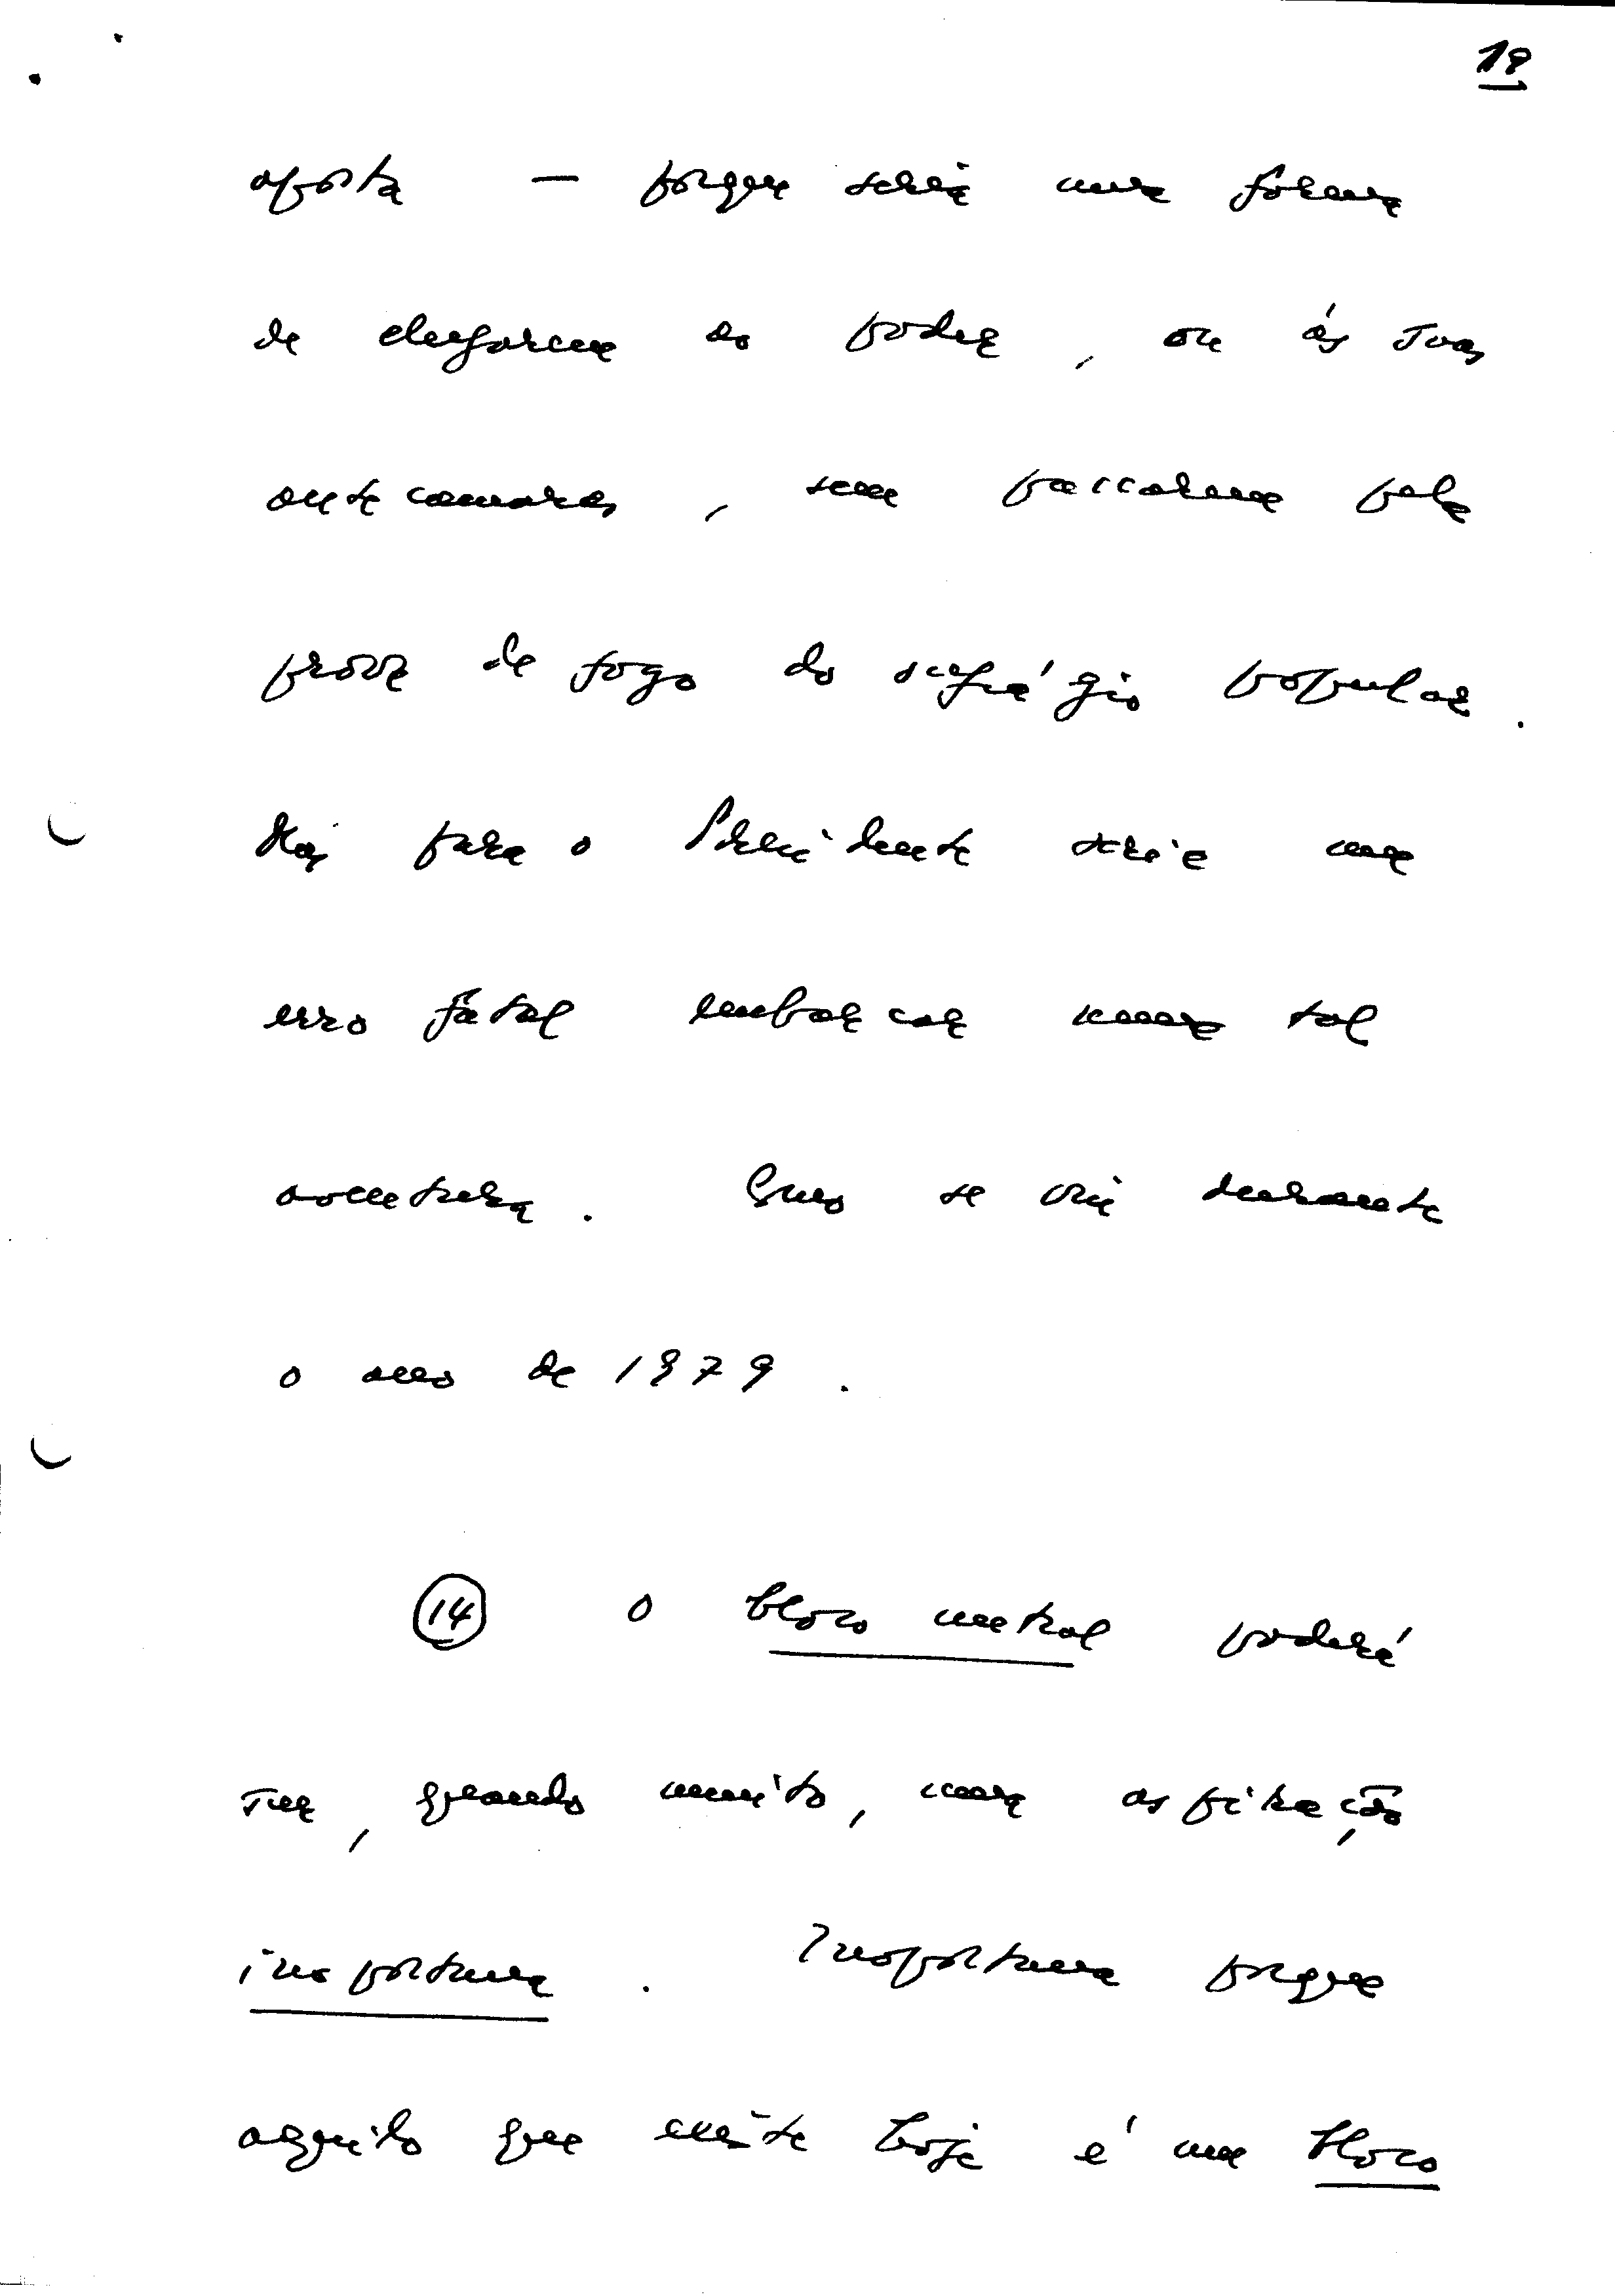 19
aposta — porque seria uma forma
de chegarem ao poder, ou às suas
antecamaras, sem passarem pela
prova de fogo do sufrágio popular.
Mas para o Presidente seria um
erro fatal embarcar numa tal
aventura. Como se viu durante
o ano de 1979.
14 O bloco central poderá
ser, quando muito, uma aspiração
inoportuna. Inoportuna porque
aquilo que existe hoje é um bloco